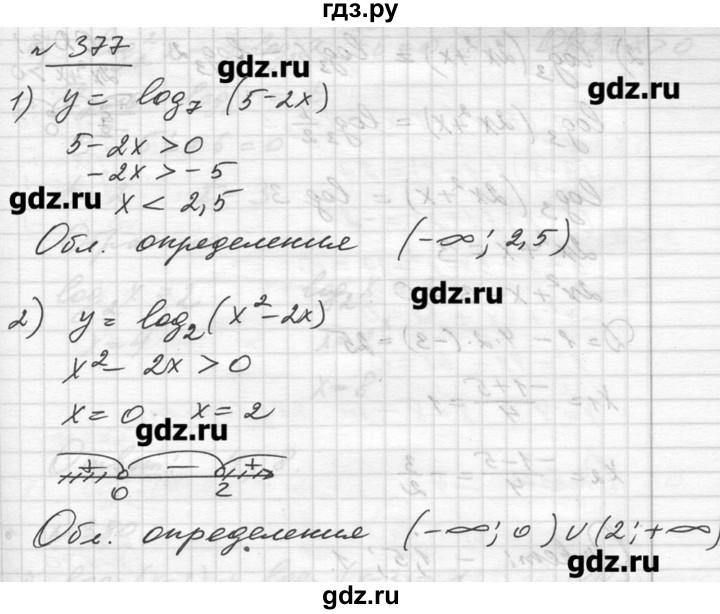 гдз.ру
№ 377
gdz.ru
1) y = log₇ (5-2x)
gdz.ru
5-2x>0
-2x>-5
gdz.ru
x < 2,5
Обл. определения (-∞; 2,5)
gdz.ru
2) y = log₂ (x²-2x)
x² - 2x > 0
x = 0 x = 2
gdz.ru
+ — +
0 2
Обл. определения (-∞; 0) ∪ (2; +∞)
gdz.ru
gdz.ru